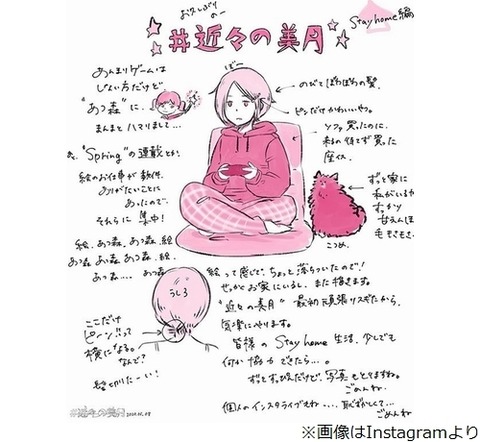 お久しぶりの
Stay home 編
#近々の美月
あんまりゲームは
しない方だけど
"あつ森"に
まんまとハマりまして…
"Spring"の連載とか
絵のお仕事が数件、
ありがたいことに
あったので、
それらに集中!
絵、あつ森、あつ森、絵
あつ森、あつ森、あつ森、絵、
あつ森… あつ森
ぼー
のびてぼわぼわの髪。
ピンだけかわいいやつ。
ソファ買ったのに
座イス。
ずっと家に
私がいるから
すっかり
甘えんぼ
もきもき。
こつめ。
うしろ
ここだけ
ピーンって
横になる。
なんで?
髪切りたーい!
絵って感じで、ちょっと落ちついたので!
せっかくお家にいるし、また描きます。
"近々の美月"最初頑張りすぎたから、
気楽にやります。
皆様のStay home 生活、少しでも
何か協力できたら…。
ずっとすっぴんだけど、写真もとりますね。
ごめんね
個人のインスタライブもね…、恥ずかしくて…
ごめんね
#近々の美月
※画像はInstagramより